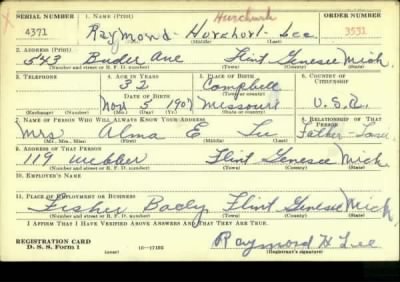 SERIAL NUMBER 1. NAME (Print) Hurchurl ORDER NUMBER
X 4371 Raymond - Hurchurl - Lee 3531
(First) (Middle) (Last)
2. ADDRESS (Print)
543 Buder Ave Flint Genesee Mich.
(Number and street or R. F. D. number) (Town) (County) (State)
3. TELEPHONE 4. AGE IN YEARS 5. PLACE OF BIRTH 6. COUNTRY OF CITIZENSHIP
32 Campbell
DATE OF BIRTH (Town or county)
Nov 5 1907 Missouri U.S.A.
(Exchange) (Number) (Mo.) (Day) (Yr.) (State or country)
7. NAME OF PERSON WHO WILL ALWAYS KNOW YOUR ADDRESS 8. RELATIONSHIP OF THAT PERSON
Mrs Alma E Lee
(Mr., Mrs., Miss) (First) (Middle) (Last)
9. ADDRESS OF THAT PERSON
119 Webber Flint Genesee Mich.
(Number and street or R. F. D. number) (Town) (County) (State)
10. EMPLOYER'S NAME
11. PLACE OF EMPLOYMENT OR BUSINESS
Fisher Body Flint Genesee Mich
(Number and street or R. F. D. number) (Town) (County) (State)
I AFFIRM THAT I HAVE VERIFIED ABOVE ANSWERS AND THAT THEY ARE TRUE.
REGISTRATION CARD
D. S. S. Form 1 (over) 16-17105 Raymond H Lee
(Registrant's signature)